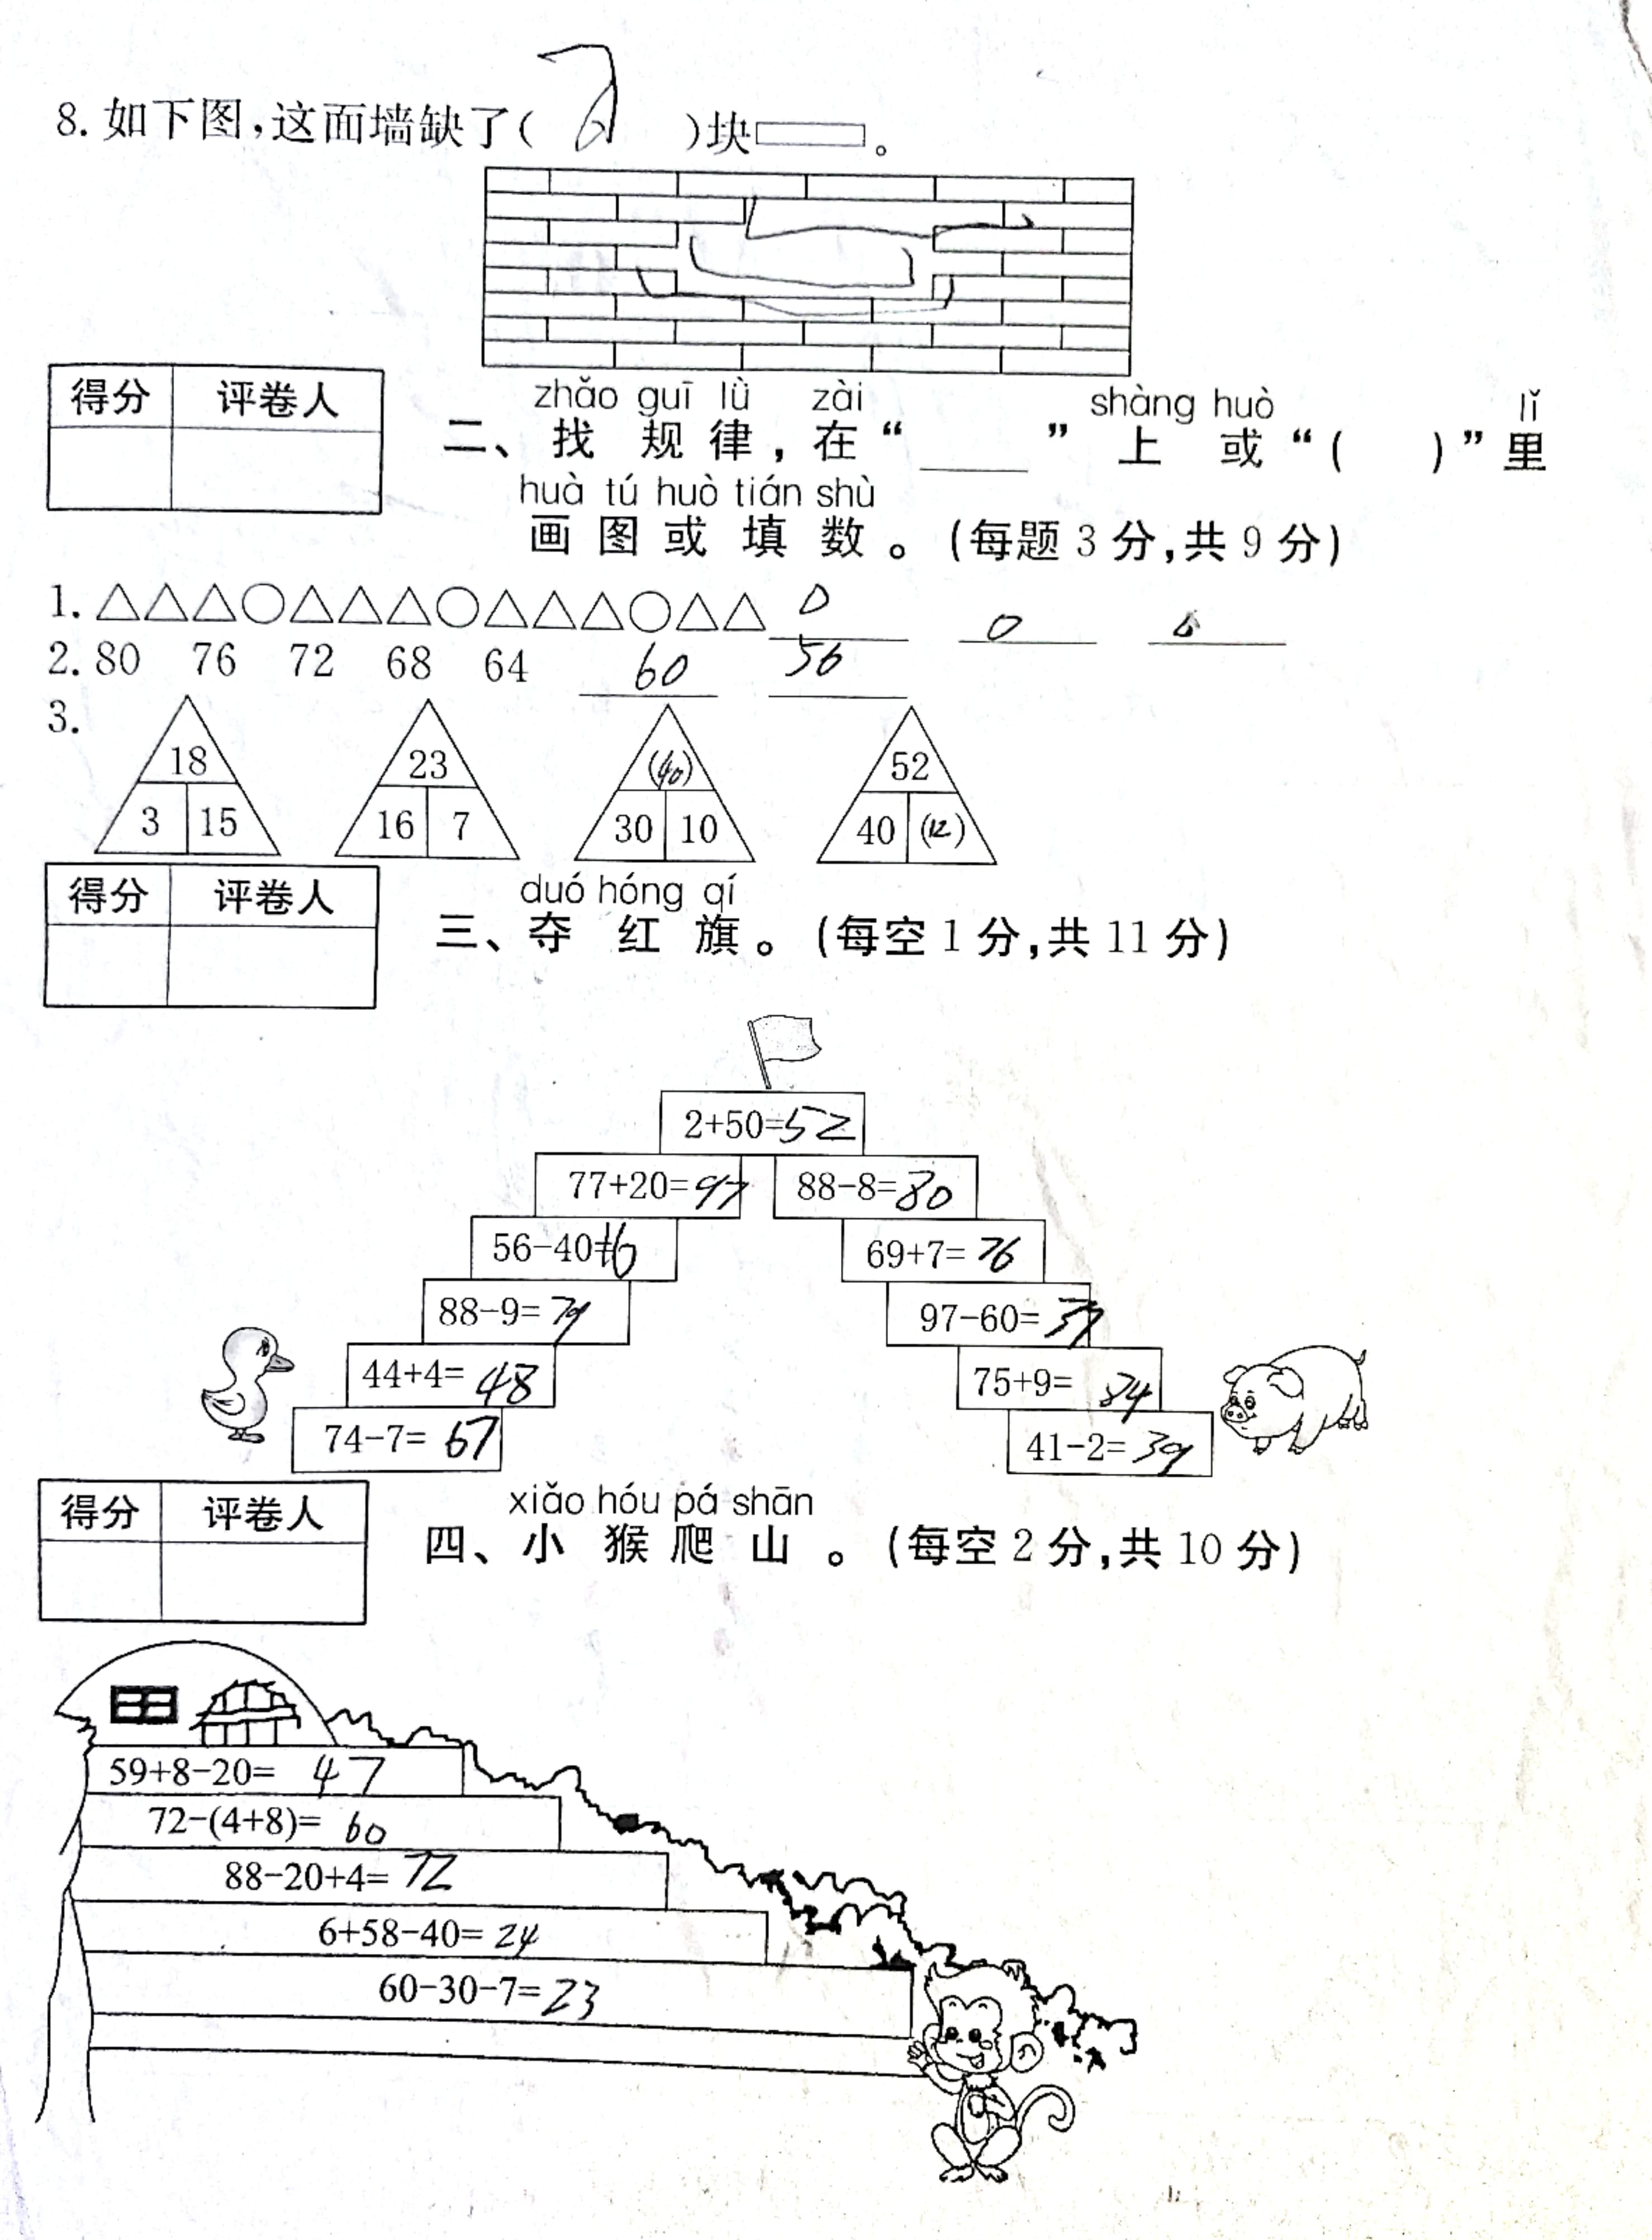 8. 如下图,这面墙缺了(    )块▭。
得分 评卷人
zhǎo guī lǜ zài shàng huò lǐ
二、找规律,在“____”上或“(    )”里
huà tú huò tián shù
画图或填数。(每题3分,共9分)
1. △△△○△△△○△△△○△△ 0 0
2. 80 76 72 68 64 60 56
3.
18 23 (40) 52
3 15 16 7 30 10 40 (12)
得分 评卷人
duó hóng qí
三、夺红旗。(每空1分,共11分)
2+50=52
77+20=97 88-8=80
56-40=16 69+7=76
88-9=79 97-60=37
44+4=48 75+9=84
74-7=67 41-2=39
得分 评卷人
xiǎo hóu pá shān
四、小猴爬山。(每空2分,共10分)
59+8-20=47
72-(4+8)=60
88-20+4=72
6+58-40=24
60-30-7=23